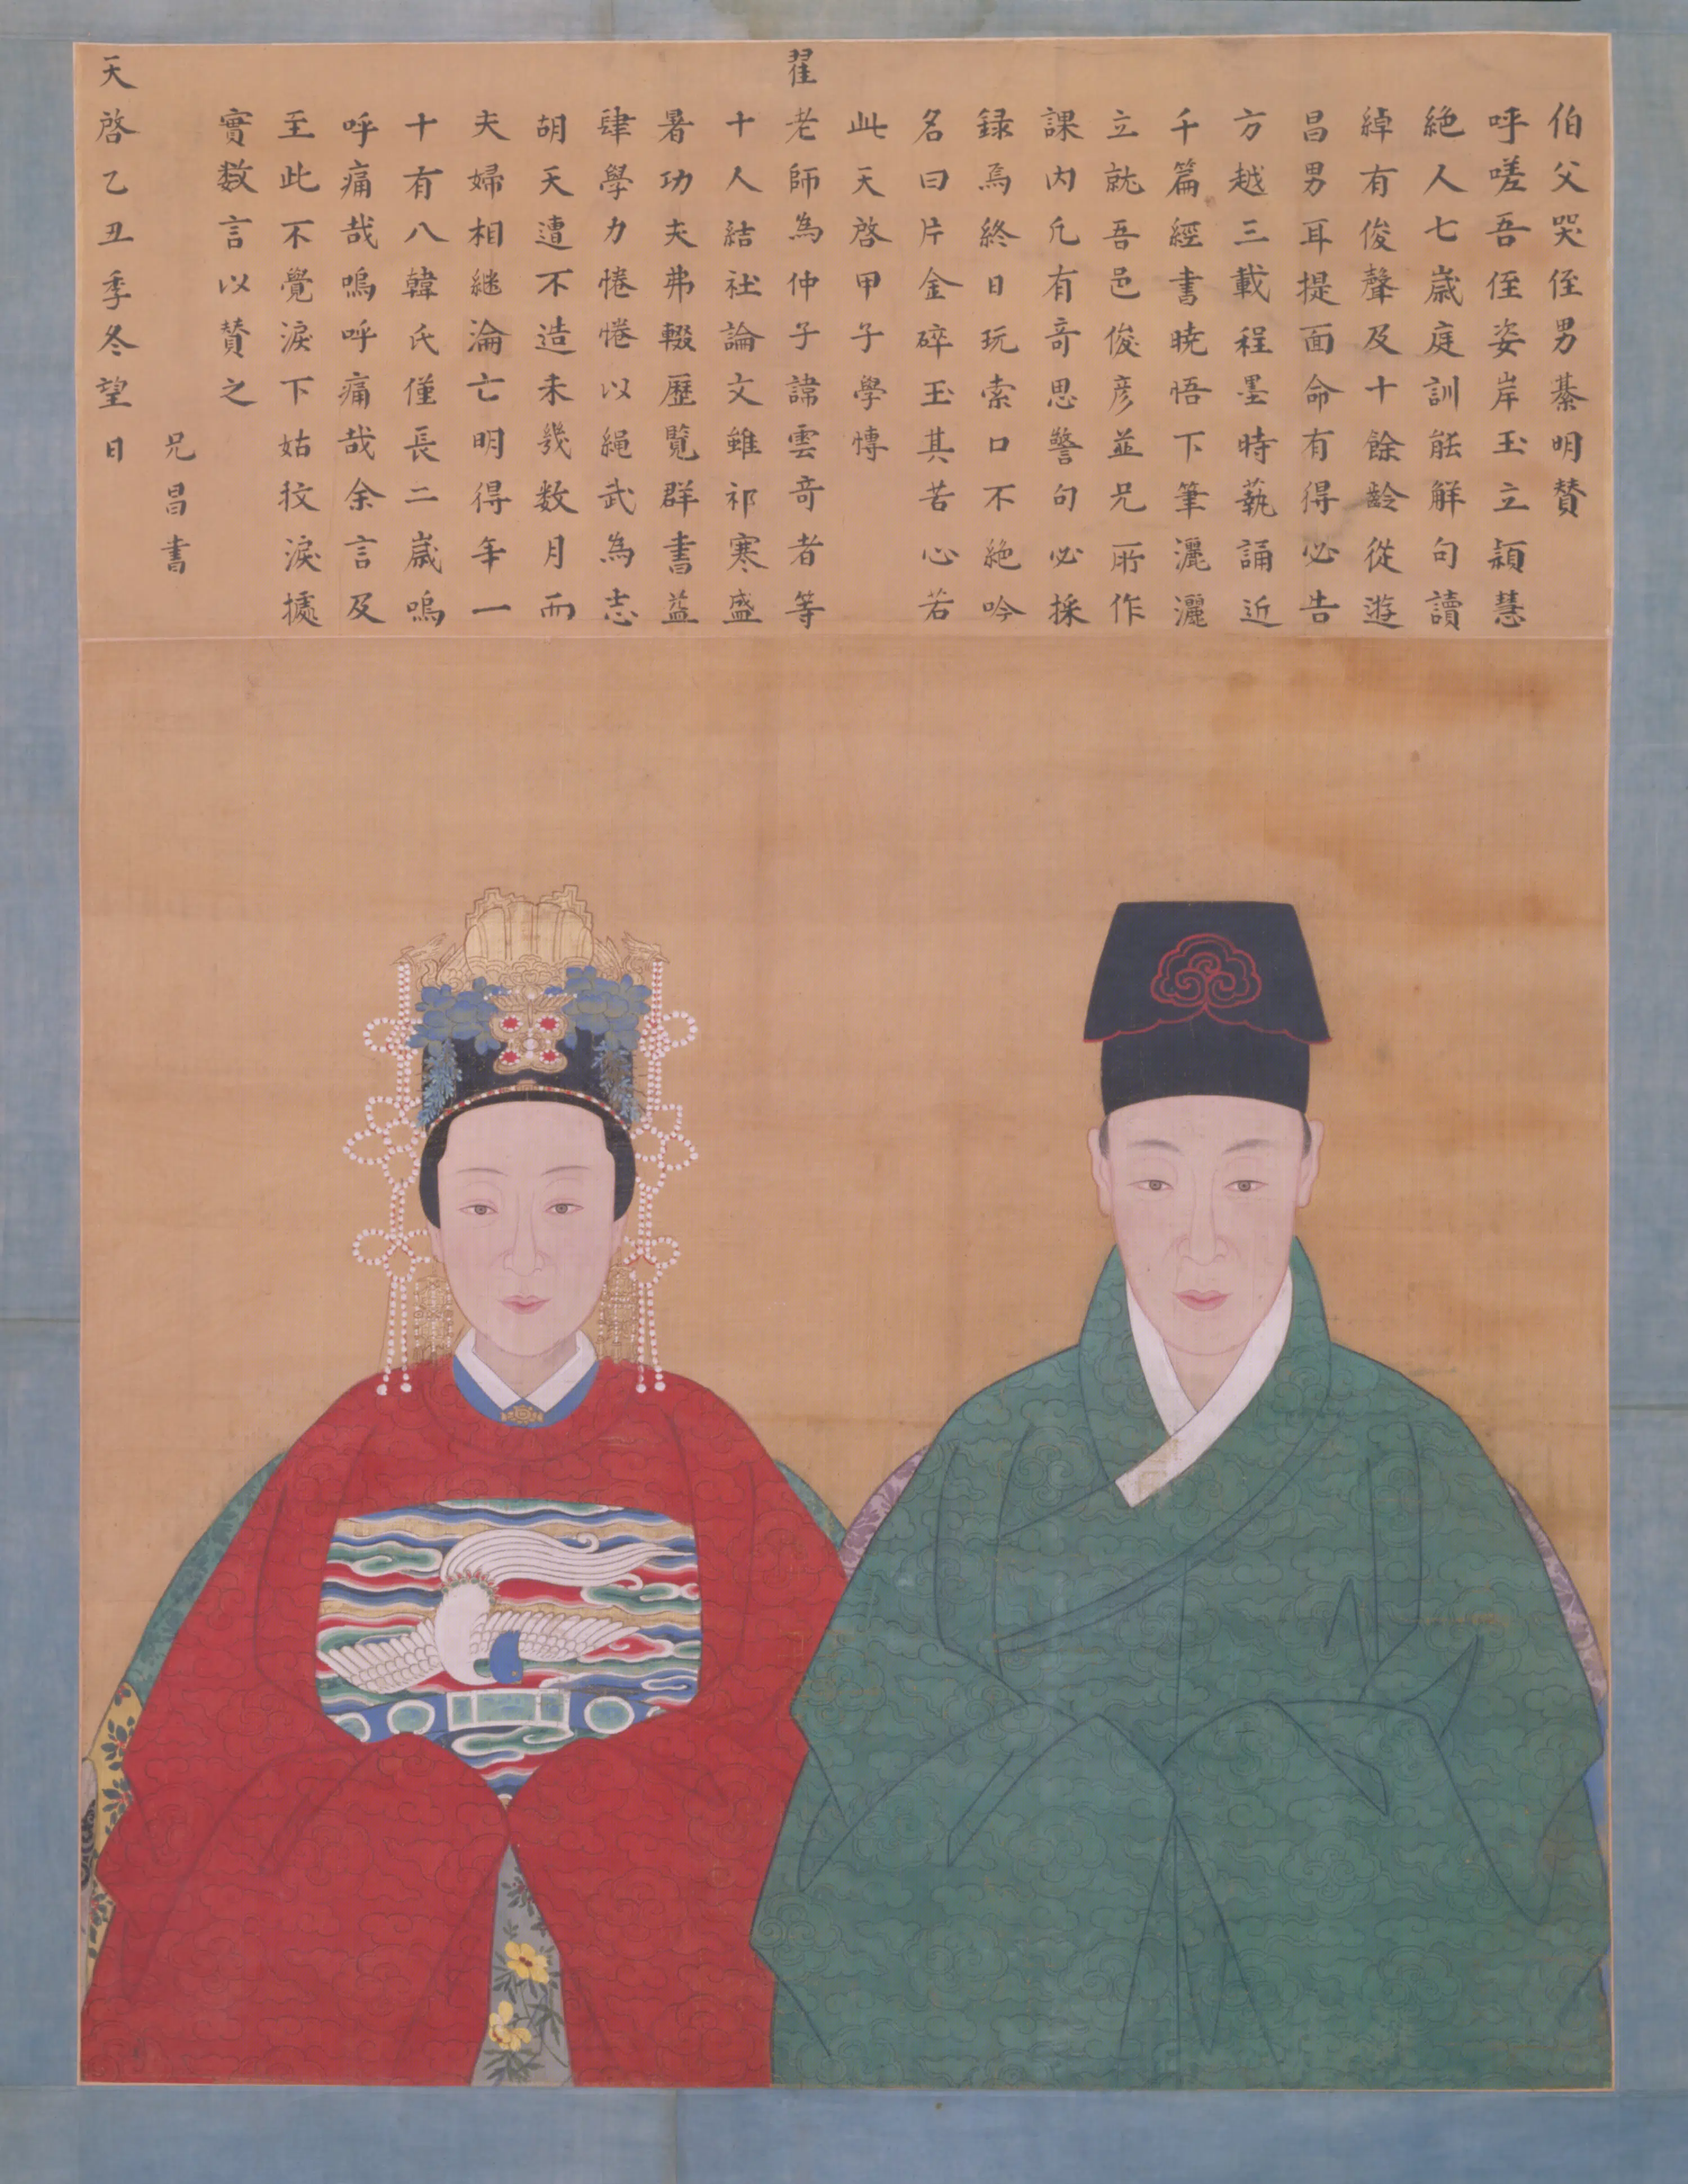 伯父哭侄男綦明贊
呼嗟吾侄姿岸玉立穎慧
絶人七歳庭訓能解句讀
綽有俊聲及十餘齡從遊
昌男耳提面命有得必告
方越三載程墨時藝誦近
千篇經書曉悟下筆灑灑
立就吾邑俊彦並兄所作
課内凢有竒思警句必採
録焉終日玩索口不絶吟
名曰片金碎玉其苦心若
此天啓甲子學愽
翟老師為仲子諱雲竒者等
十人結社論文雖祁寒盛
暑功夫弗輟歷覧群書益
肆學力惓惓以繩武為志
胡天遭不造未幾数月而
夫婦相継淪亡明得年一
十有八韓氏僅長二歳嗚
呼痛哉嗚呼痛哉余言及
至此不覺淚下姑抆淚攄
實数言以賛之
兄昌書
天啓乙丑季冬望日